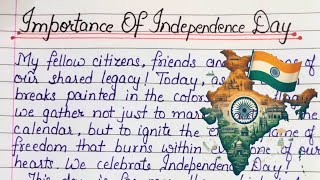 Importance Of Independence Day
My fellow citizens, friends and of
our shared legacy! Today, as
breaks painted in the colors
we gather not just to mar
calendar, but to ignite the e me of
freedom that burns within e one of our
hearts. We celebrate Independence Day!